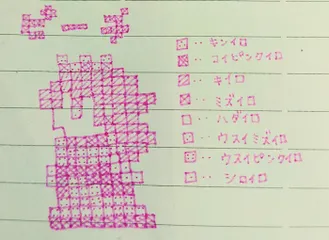 ピーチ
‥キンイロ
‥コイピンクイロ
‥キイロ
‥ミズイロ
‥ハダイロ
‥ウスイミズイロ
‥ウスイピンクイロ
‥シロイロ